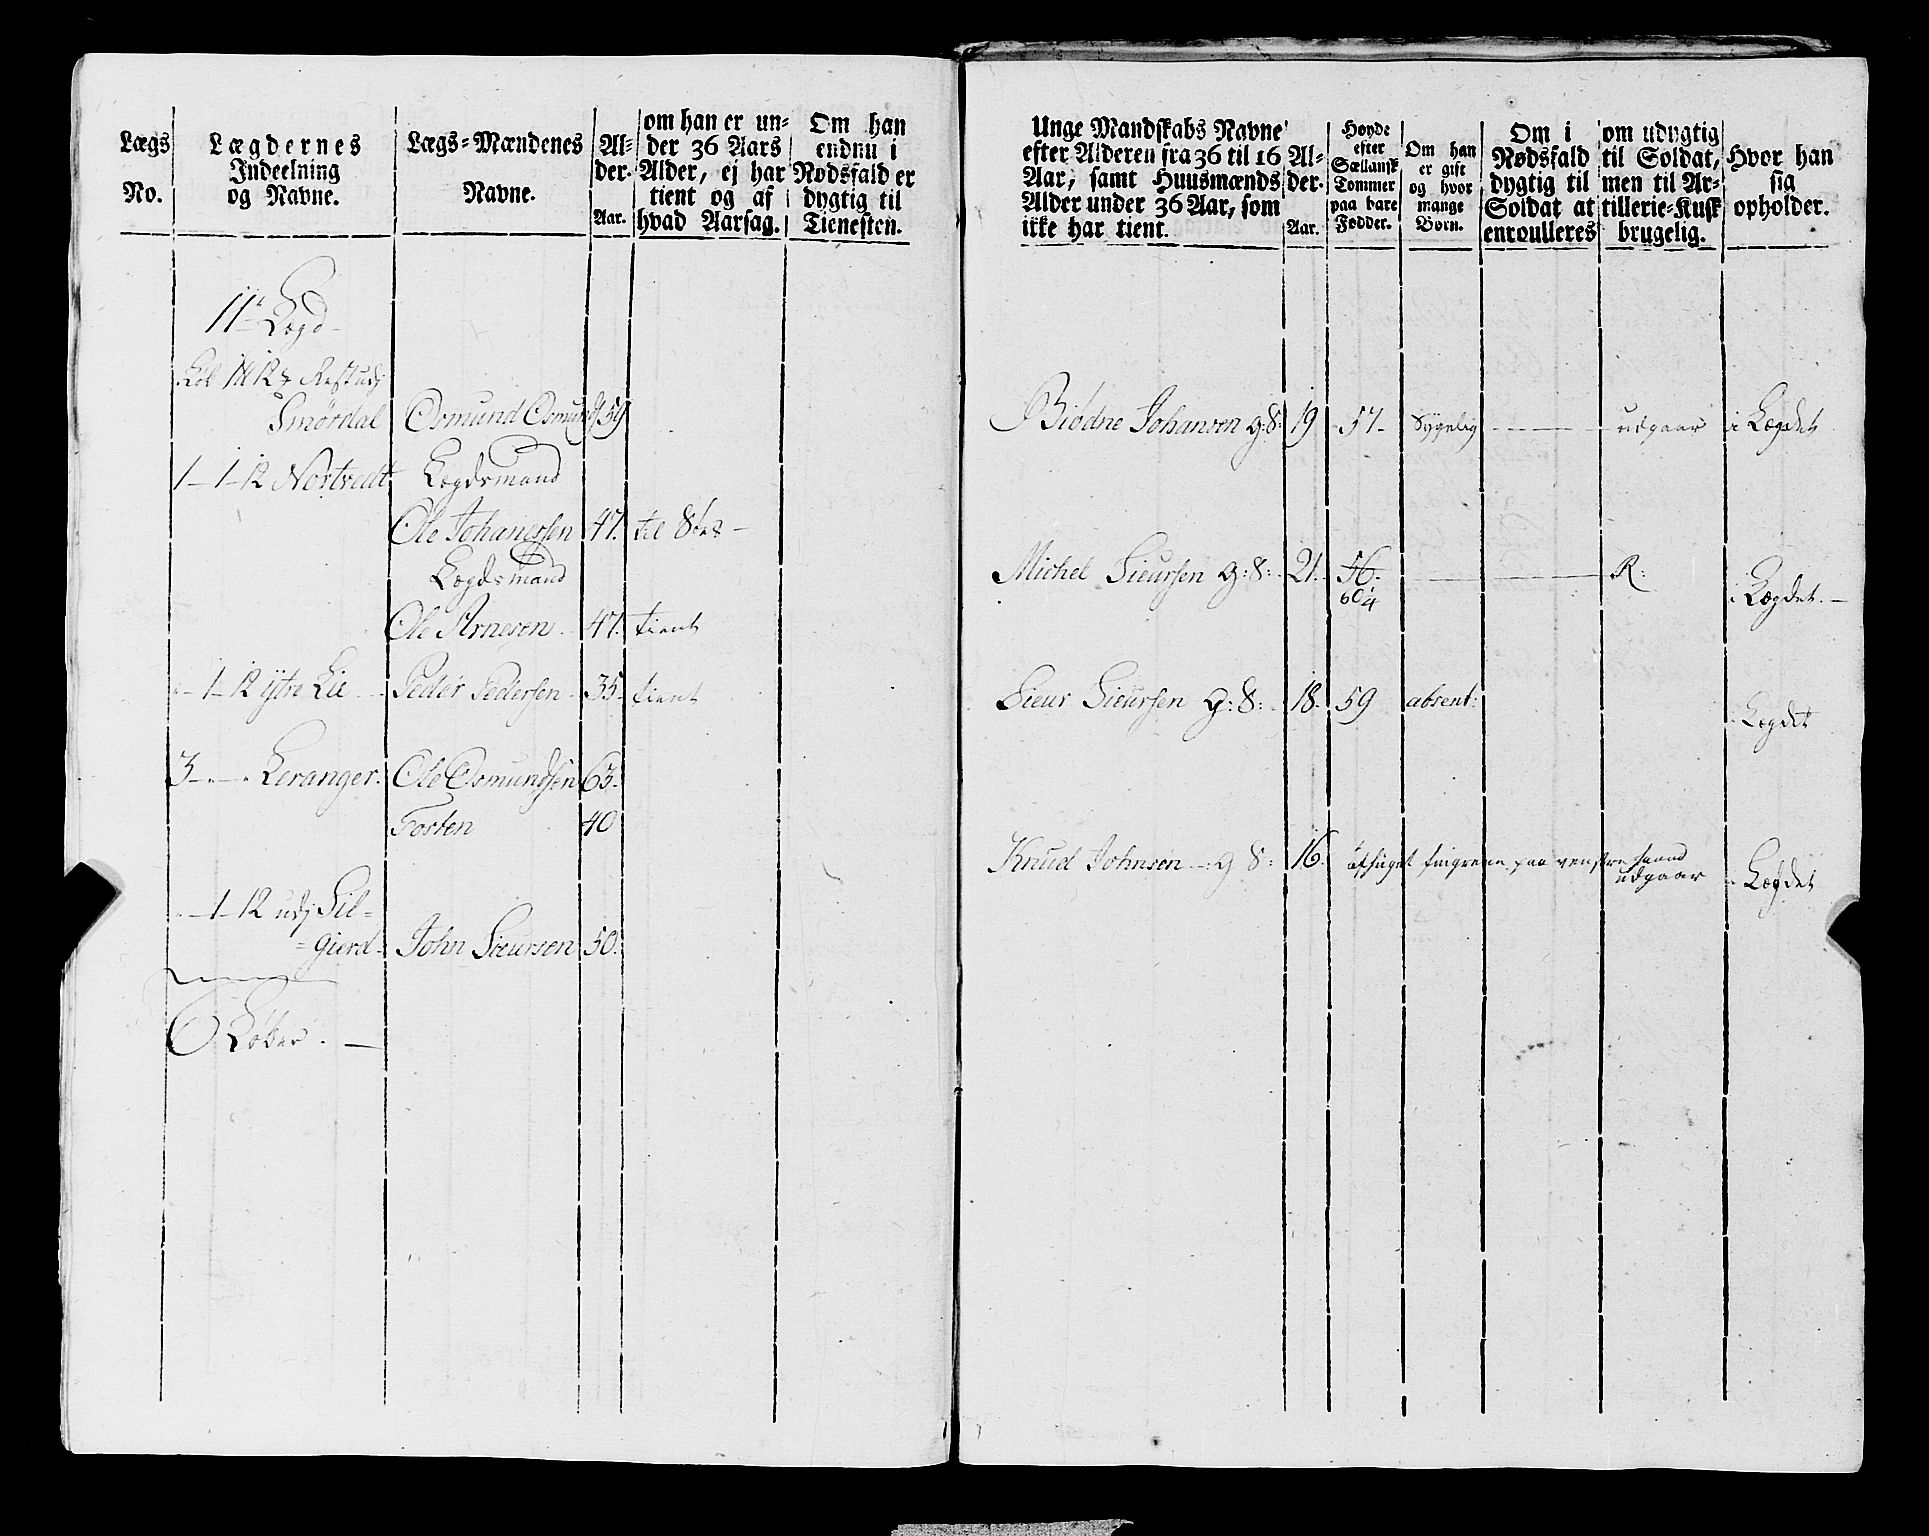 Lægs
No.
Lægdernes
Indeelning
og Navne.
Lægs-Mændenes
Navne.
Al-
der.
Aar.
om han er un-
der 36 Aars
Alder, ej har
tient og af
hvad Aarsag.
Om han
endnu i
Nødsfald er
dygtig til
Tienesten.
11te Lægd
Løb Ml 12 Rest udj
Smørdal Osmund Osmunds 59
1 - 1 - 12 Nortvedt Lægdsmand
Ole Johanessen 47. til Søes -
Lægdsmand
Ole Arnesen 47. tient
- 1 - 12 ytre Lie Peder Pedersen 35 tient
3 - - Leranger. Ole Osmundsen 63.
Tosten 40
- 1 - 12 udj Sil=
=gierd John Sieursen 50.
6 Løber. -
Unge Mandskabs Navne
efter Alderen fra 36 til 16
Aar, samt Huusmænds
Alder under 36 Aar, som
ikke har tient.
Al-
der.
Aar.
Høyde
efter
Sællansk
Tommer
paa bare
Fødder.
Om han
er gift
og hvor
mange
Børn.
Om i
Nødsfald
dygtig til
Soldat at
enroulleres
om udygtig
til Soldat,
men til Ar-
tillerie-Kusk
brugelig.
Hvor han
sig
opholder.
Biødne Johansen g:S: 19 57 Sygelig udgaar i Lægdet
Michel Sieursen g:S: 21. 56. R: i Lægdet. -
60 1/4
Sieur Sieursen g:S: 18. 59 absent: Lægdet
Knud Johnsen g S: 16. fingrene paa venstre haand
udgaar Lægdet